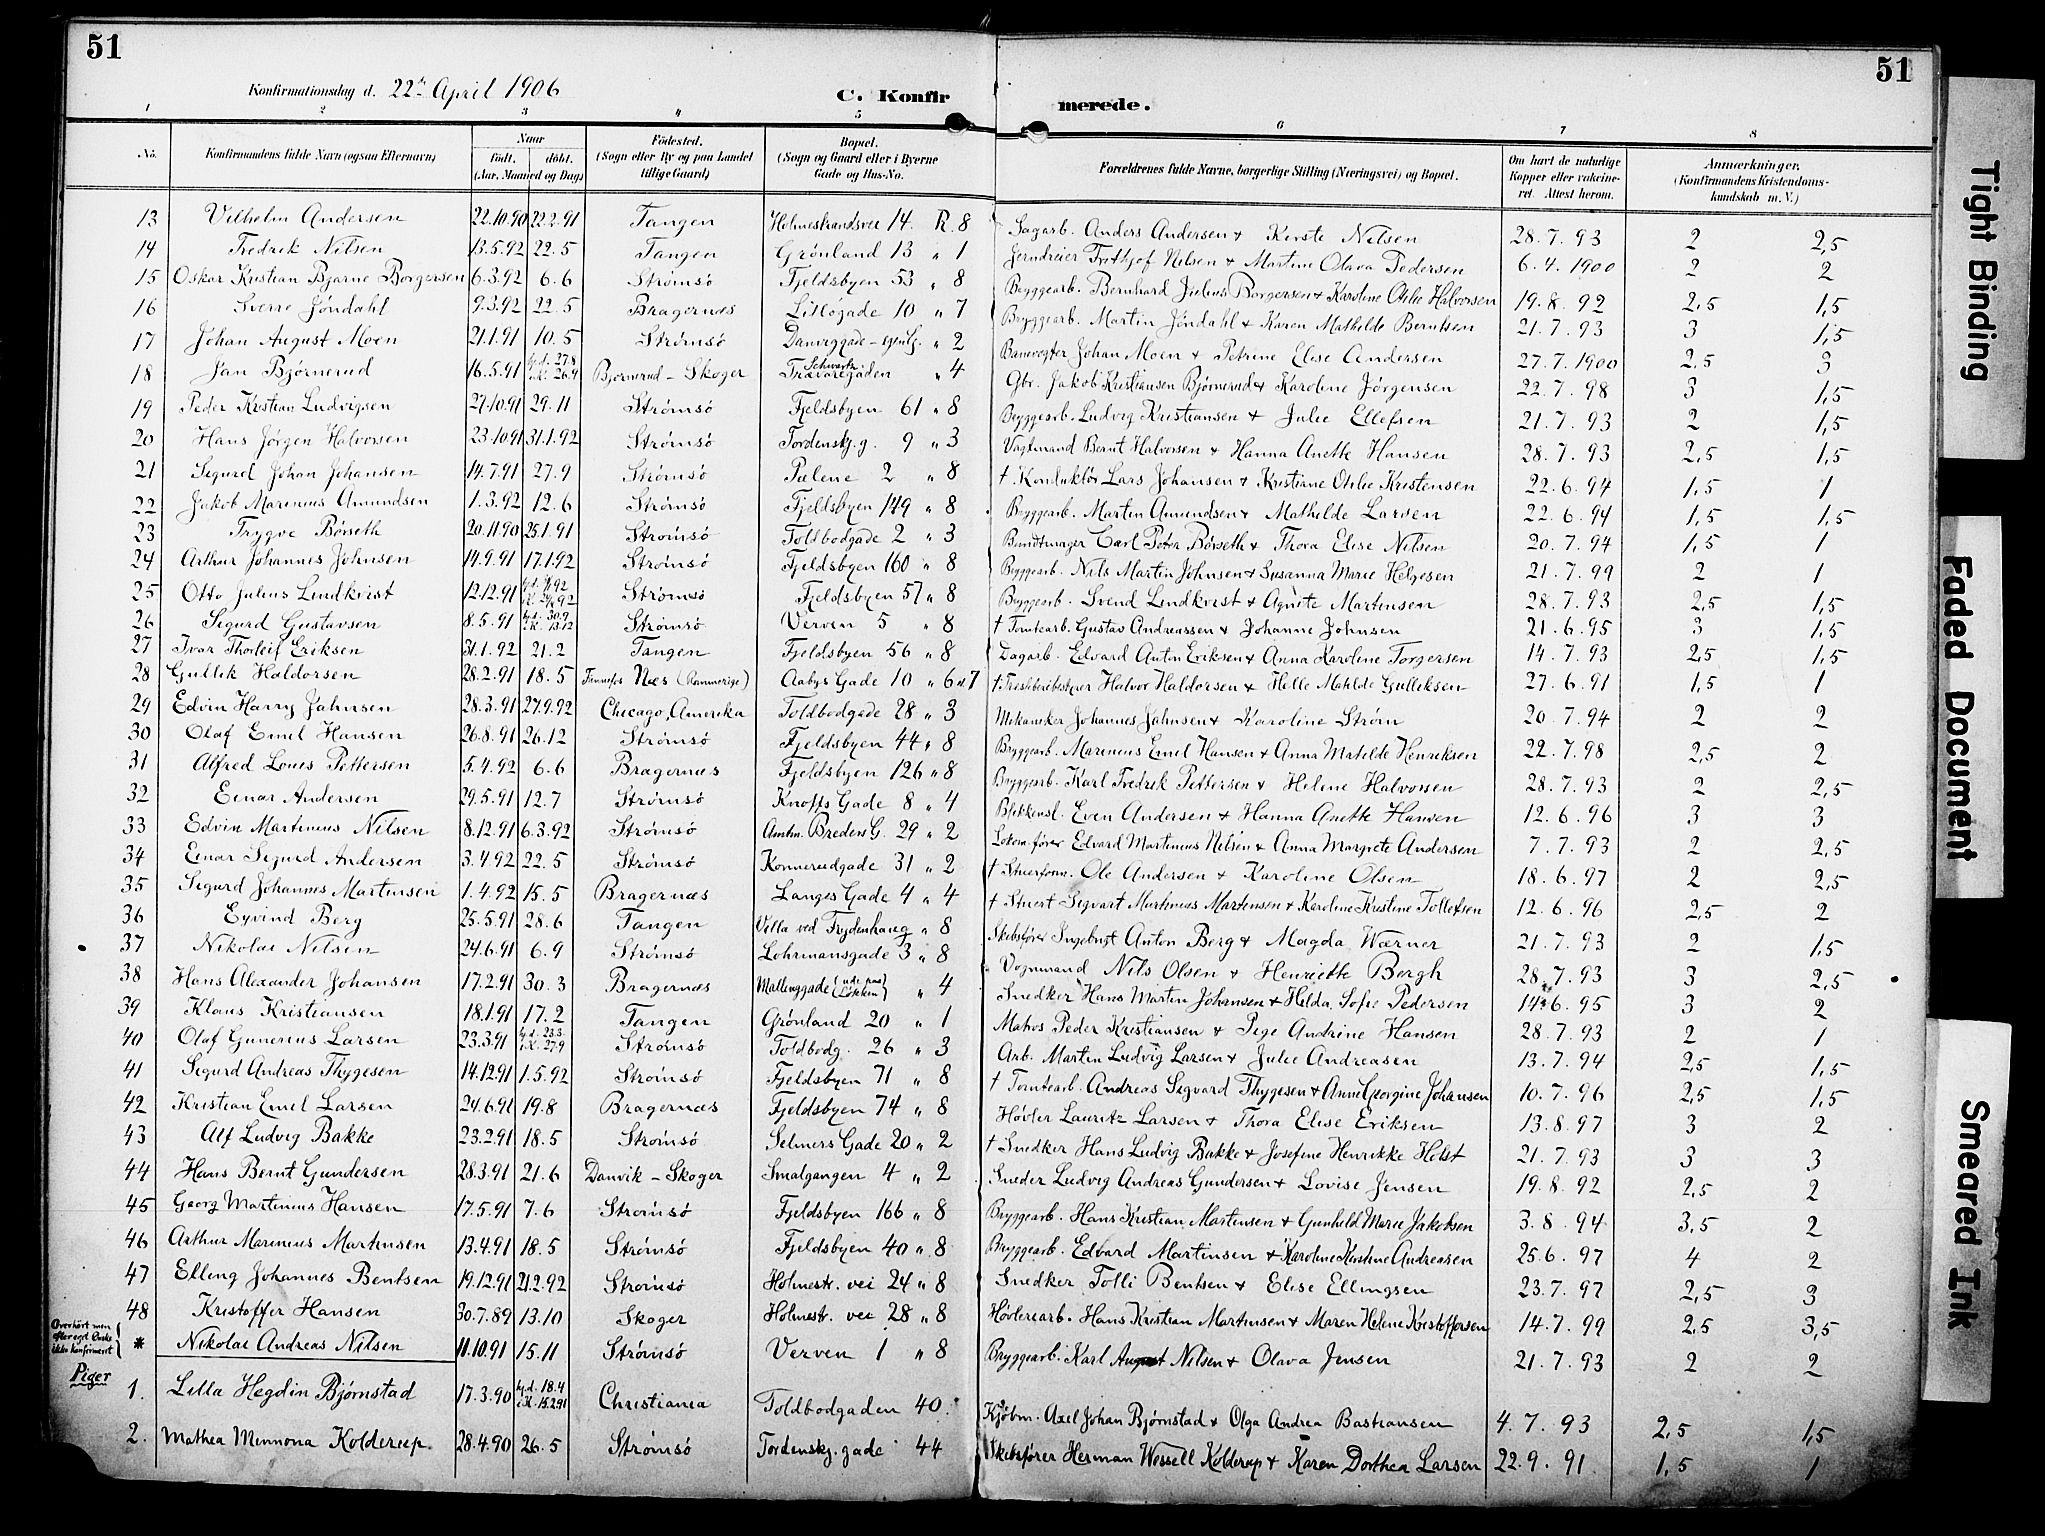 51
51
Konfirmationsdag d. 22de April 1906
C. Konfirmerede.
1 2 3 4 5 6 7 8
No. Konfirmandens fulde Navn (ogsaa Efternavn) Naar født. døbt. (Aar, Maaned og Dag) Fødested. (Sogn eller By og paa Landet tillige Gaard) Bopæl. (Sogn og Gaard eller i Byerne Gade og Hus-No. Forældrenes fulde Navne, borgerlige Stilling (Næringsvei) og Bopæl. Om havt de naturlige Kopper eller vaccineret. Attest herom. Anmærkninger, (Konfirmandens Kristendomskundskab m. V.)
13 Vilhelm Andersen 22.10.90 22.2.91 Tangen Holmestrandsvei 14. R. 8 Sagarb. Anders Andersen & Kirste Nilsen 28.7.93 2 2,5
14 Fredrik Nilsen 13.5.92 22.5 Tangen Grønland 13 " 1 Jerndreier Frithjof Nilsen & Martine Olava Pedersen 6.4.1900 2 2
15 Oskar Kristian Bjarne Borgersen 6.3.92 6.6 Strømsö Fjeldsbyen 53 " 8 Bryggearb. Bernhard Julius Borgersen & Karoline Otilie Halvorsen 19.8.92 2,5 1,5
16 Sverre Jöndahl 9.3.92 22.5 Bragernæs Lilløgade 10 " 7 Bryggearb. Martin Jöndahl & Karen Mathilde Berntsen 21.7.93 3 1,5
17 Johan August Moen 21.1.91 10.5 Strømsö Danviggade " 2 Banevogter Johan Moen & Petrine Elise Andersen 27.7.1900 2,5 3
18 Jan Bjørnerud 16.5.91 hj.d. 27.8 i K. 26.9 Bjørnerud - Skoger Schwartz " 4 Gbr. Jakob Kristiansen Bjørnerud & Karoline Jørgensen 22.7.98 3 1,5
19 Peder Kristian Ludvigsen 27.10.91 29.11 Strømsö Fjeldsbyen 61 " 8 Bryggearb. Ludvig Kristiansen & Julie Ellefsen 21.7.93 2 1,5
20 Hans Jørgen Halvorsen 23.10.91 31.1.92 Strømsö Tordenskj.g. 9 " 3 Vagtmand Bernt Halvorsen & Hanna Anette Hansen 28.7.93 2,5 1,5
21 Sigurd Johan Johansen 14.7.91 27.9 Strømsö Pælene 2 " 8 † Konduktør Lars Johansen & Kristiane Otilie Kristensen 22.6.94 1,5 1
22 Jakob Marinius Amundsen 1.3.92 12.6 Strømsö Fjeldsbyen 149 " 8 Bryggearb. Martin Amundsen & Mathilde Larsen 22.6.94 1,5 1,5
23 Trygve Børseth 20.11.90 25.1.91 Strømsö Toldbodgade 2 " 3 Bundtmager Carl Peter Børseth & Thora Elise Nilsen 20.7.94 1,5 1
24 Arthur Johannes Johnsen 14.9.91 17.1.92 Strømsö Fjeldsbyen 160 " 8 Bryggearb. Nils Martin Johnsen & Susanna Marie Helgesen 21.7.99 2 1
25 Otto Julius Lindkvist 12.12.91 Strømsö Fjeldsbyen 57 " 8 Bryggearb. Svend Lindkvist & Agnete Martinsen 28.7.93 2,5 1,5
26 Sigurd Gustavsen 8.5.91 hj.d. 30.9 i K. 13.12 Strømsö Verven 5 " 8 † Tomtearb. Gustav Andreassen & Johanne Johnsen 21.6.95 3 1,5
27 Ivar Thorleif Eriksen 31.1.92 21.2 Tangen Fjeldsbyen 56 " 8 Dagarb. Edvard Anton Eriksen & Anna Karoline Torgersen 14.7.93 2,5 1,5
28 Gullik Haldorsen 28.2.91 18.5 Næs (Romerige) Aabys Gade 10 " 6 & 7 † Træsliberibestyrer Halvor Haldorsen & Helle Matilde Gulliksen 27.6.91 1,5 1
29 Edvin Harry Jahnsen 28.3.91 27.9.92 Chicago, Amerika Toldbodgade 28 " 3 Mekaniker Johannes Jahnsen & Karoline Strøm 20.7.94 2 2
30 Olaf Emil Hansen 26.8.91 26.12 Strømsö Fjeldsbyen 44 " 8 Bryggearb. Marinius Emil Hansen & Anna Matilde Henriksen 22.7.98 2,5 2
31 Alfred Louis Pettersen 5.4.92 6.6 Bragernæs Fjeldsbyen 126 " 8 Bryggearb. Karl Fredrik Pettersen & Helene Halvorsen 28.7.93 2 2,5
32 Einar Andersen 29.5.91 12.7 Strømsö Knoffs Gade 8 " 4 Blikkensl. Even Andersen & Hanna Anette Hansen 12.6.96 3 3
33 Edvin Martinius Nilsen 8.12.91 6.3.92 Strømsö Amtm. Breders G. 29 " 2 Lokom.fører Edvard Martinius Nilsen & Anna Margrete Andersen 7.7.93 2 2,5
34 Einar Sigurd Andersen 3.4.92 22.5 Strømsö Konnerudgade 31 " 2 † Stuerform. Ole Andersen & Karoline Olsen 18.6.97 2 2,5
35 Sigurd Johannes Martinsen 1.4.92 15.5 Bragernæs Langes Gade 4 " 4 † Stuert Sigvart Martinius Martinsen & Karoline Kristine Tollefsen 12.6.96 2,5 2
36 Eyvind Berg 25.5.91 28.6 Tangen Villa ved Frydenhaug " 8 Skibsfører Ingebrigt Anton Berg & Magda Wærner 21.7.93 2 1,5
37 Nikolai Nilsen 24.6.91 6.9 Strømsö Lohrmansgade 3 " 8 Vognmand Nils Olsen & Henriette Bergh 28.7.93 3 2,5
38 Hans Alexander Johansen 17.2.91 30.3 Bragernæs Mallinggade (ude paa Løkken) " 4 Snedker Hans Martin Johansen & Hilda Sofie Pedersen 14.6.95 3 2
39 Klaus Kristiansen 18.1.91 17.2 Tangen Grønland 20 " 1 Matros Peder Kristiansen & Pige Andrine Hansen 28.7.93 2 1
40 Olaf Gunerius Larsen 23.3.91 hj.d. 23.3. i K. 27.9 Strømsö Toldbodg. 26 " 3 Arb. Martin Ludvig Larsen & Julie Andreasen 13.7.94 2,5 1,5
41 Sigurd Andreas Thygesen 14.12.91 1.5.92 Strømsö Fjeldsbyen 71 " 8 † Tomtearb. Andreas Sigvard Thygesen & Anne Georgine Johansen 10.7.96 2,5 1,5
42 Kristian Emil Larsen 24.6.91 19.8 Bragernæs Fjeldsbyen 74 " 8 Høvler Lauritz Larsen & Thora Elise Eriksen 13.8.97 3 2
43 Alf Ludvig Bakke 23.2.91 18.5 Strømsö Selmers Gade 20 " 2 † Snedker Hans Ludvig Bakke & Josefine Henrikke Holst 21.7.93 3 3
44 Hans Bernt Gundersen 28.3.91 21.6 Danvik - Skoger Smalgangen 4 " 2 Sneder Ludvig Andreas Gundersen & Lovise Jensen 19.8.92 2,5 2
45 Georg Martinius Hansen 17.5.91 7.6 Strømsö Fjeldsbyen 166 " 8 Bryggearb. Hans Kristian Martinsen & Gunhild Marie Jakobsen 3.8.94 3,5 2
46 Arthur Marinius Martinsen 13.4.91 18.5 Strømsö Fjeldsbyen 40 " 8 Bryggearb. Edvard Martinsen & Karoline Kirstine Andreasen 25.6.97 4 2
47 Elling Johannes Bentsen 19.12.91 21.2.92 Strømsö Holmestr. vei 24 " 8 Snedker Tolli Bentsen & Elise Ellingsen 23.7.97 2,5 3
48 Kristoffer Hansen 30.7.89 13.10 Skoger Holmestr. vei 28 " 8 Høvleriarb. Hans Kristian Martinsen & Maren Helene Kristoffersen 14.7.99 2,5 3,5
Overhørt men efter eget Ønske ikke konfirmeret * Nikolai Andreas Nilsen 11.10.91 15.11 Strømsö Verven 1 " 8 Bryggearb. Karl August Nilsen & Olava Jensen 21.7.93 2 2
Piger
1. Lilla Hegdin Bjørnstad 17.3.90 hj.d. 18.4 i K. 15.2.91 Christiania Toldbodgaden 40. Kjøbm. Axel Johan Bjørnstad & Olga Andrea Bastiansen 4.7.93 2,5 1,5
2. Mathea Minnona Kolderup. 28.4.90 26.5 Strømsö Tordenskj. gade 44 Skibsfører Herman Wessell Kolderup & Karen Dorthea Larsen 22.9.91. 1,5 1
Tight Binding
Faded Document
Smeared Ink